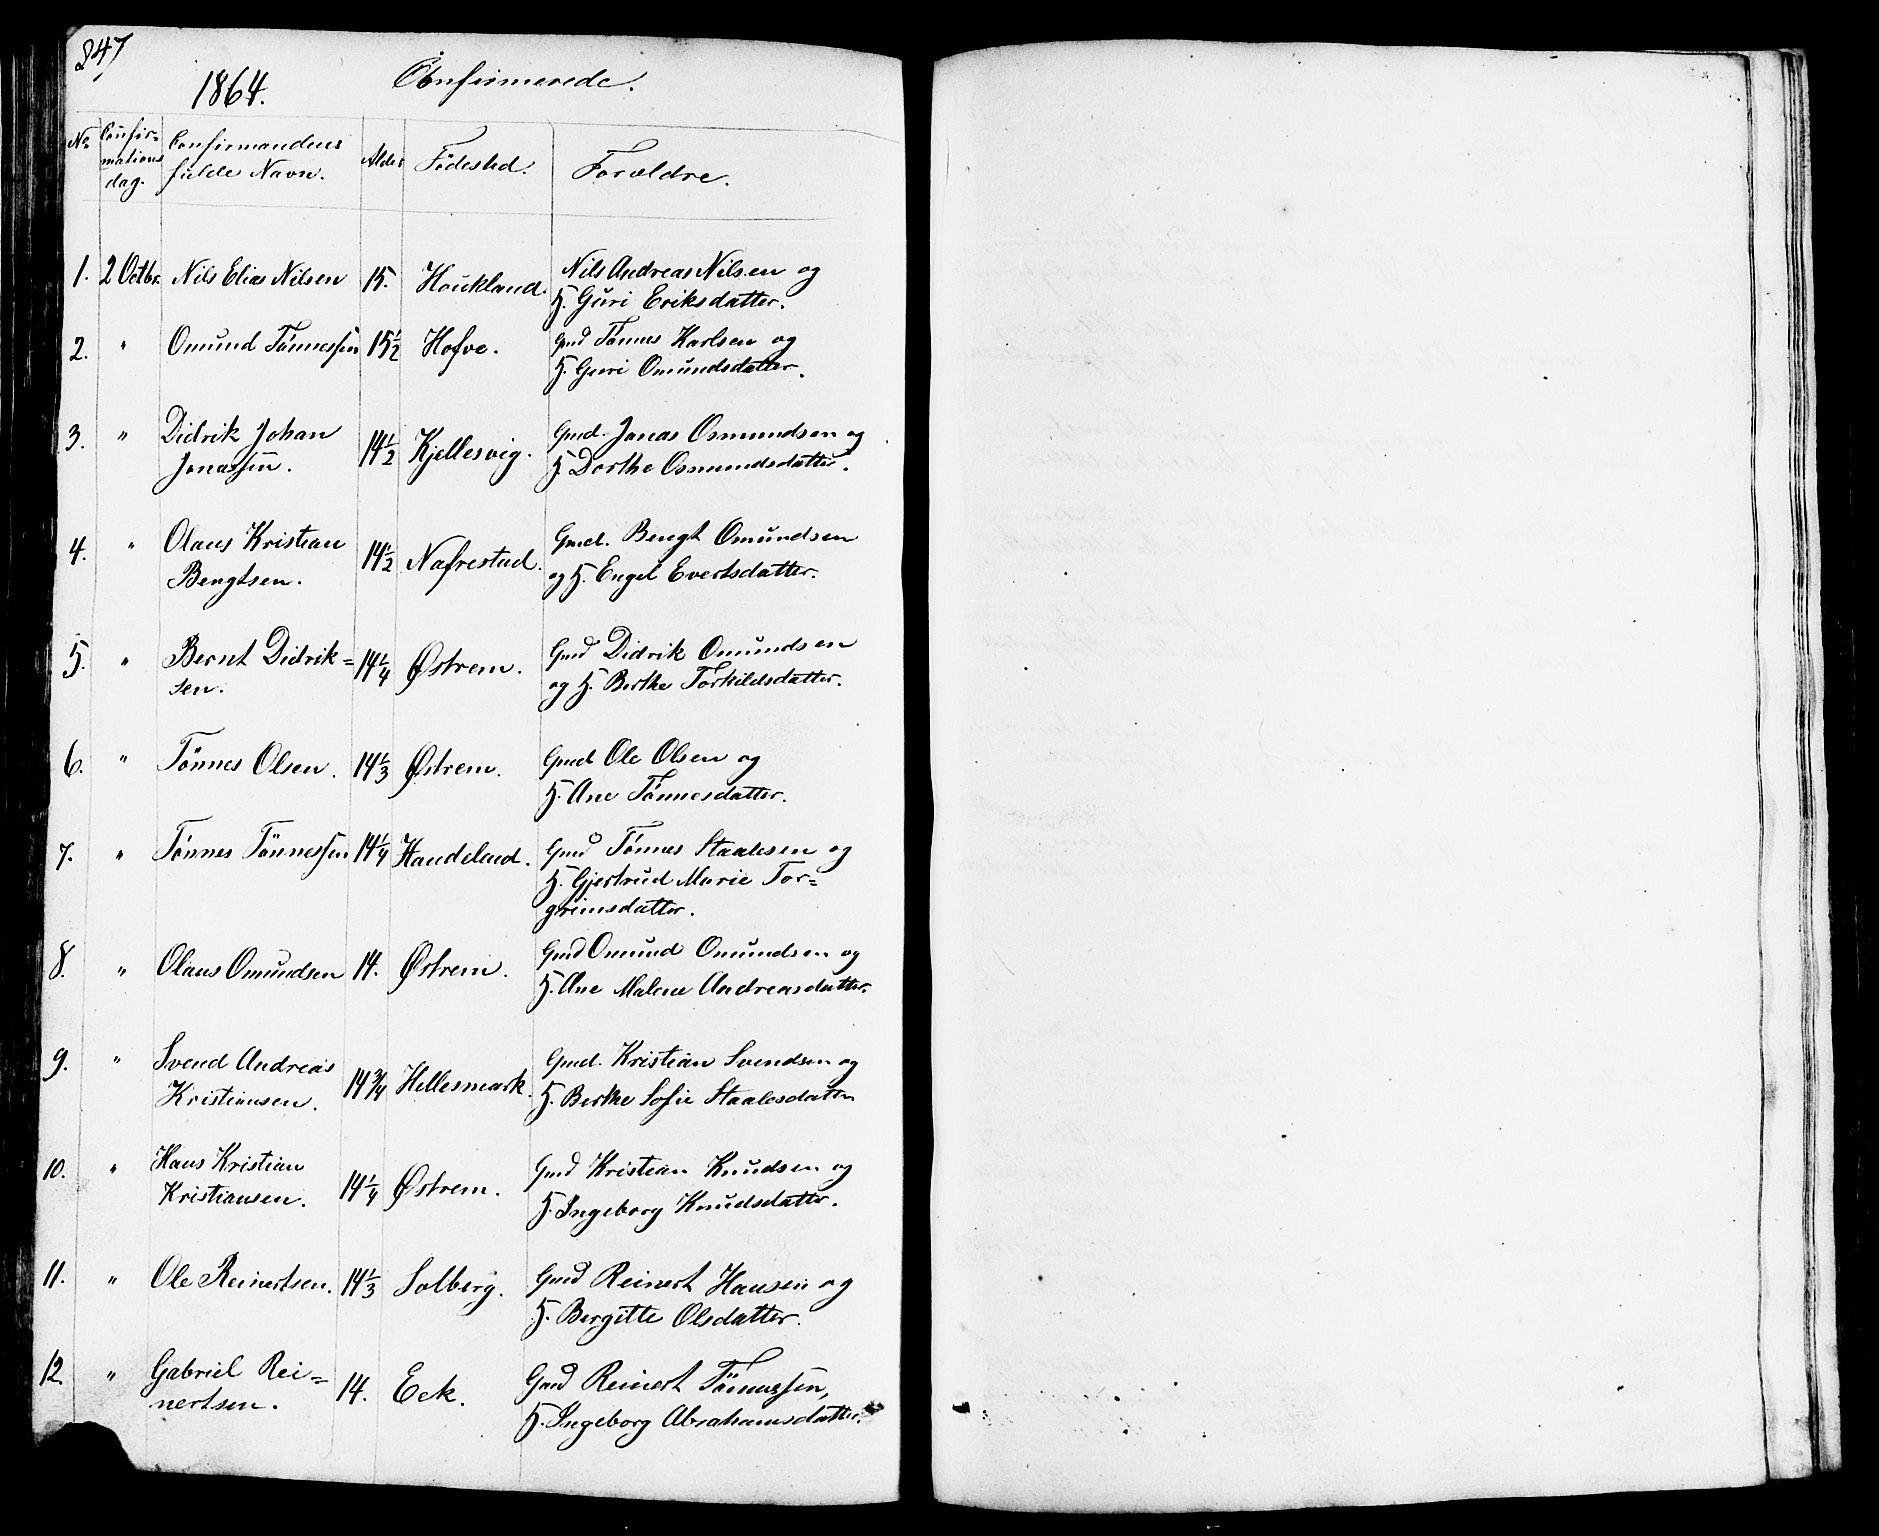 247
1864. Confirmerede.
No Confirmations dag. Confirmandens fulde Navn. Alder Fødested. Forældre.
1. 2 Octbr. Nils Elias Nilsen 15. Houkland. Nils Andreas Nilsen og
H. Guri Eriksdatter.
2. " Omund Tønnessen 15 1/2 Hofve. Gmd Tønnes Karlsen og
H. Guri Omundsdatter.
3. " Didrik Johan 14 1/2 Kjellesvig. Gmd. Jonas Osmundsen og
Jonassen. H. Dorthe Osmundsdatter.
4. " Olaus Kristian 14 1/2 Nafrestad. Gmd. Bengt Omundsen
Bengtsen. og H. Engel Evertsdatter.
5. " Bernt Didrik= 14 1/4 Østrem. Gmd Didrik Omundsen
sen. og H. Berthe Torkildsdatter.
6. " Tønnes Olsen. 14 1/3 Østrem. Gmd Ole Olsen og
H. Ane Tønnesdatter.
7. " Tønnes Tönnessen 14 1/4 Haudeland. Gmd Tønnes Staalesen og
H. Gjertrud Marie Tor=
grimsdatter.
8. " Olaus Omundsen 14. Østrem. Gmd Omund Omundsen og
H. Ane Malene Andreasdatter.
9. " Svend Andreas 14 3/4 Hellesmark. Gmd. Kristian Svendsen og
Kristiansen. H. Berthe Sofie Staalesdatter
10. " Hans Kristian 14 1/4 Østrem. Gmd Kristian Knudsen og
Kristiansen. H. Ingeborg Knudsdatter.
11. " Ole Reinertsen. 14 1/3 Solberg. Gmd Reinert Hansen og
H. Bergitte Olsdatter.
12. " Gabriel Rei= 14. Eek. Gmd Reinert Tönnessen,
nertsen. H. Ingeborg Abrahamsdatter.